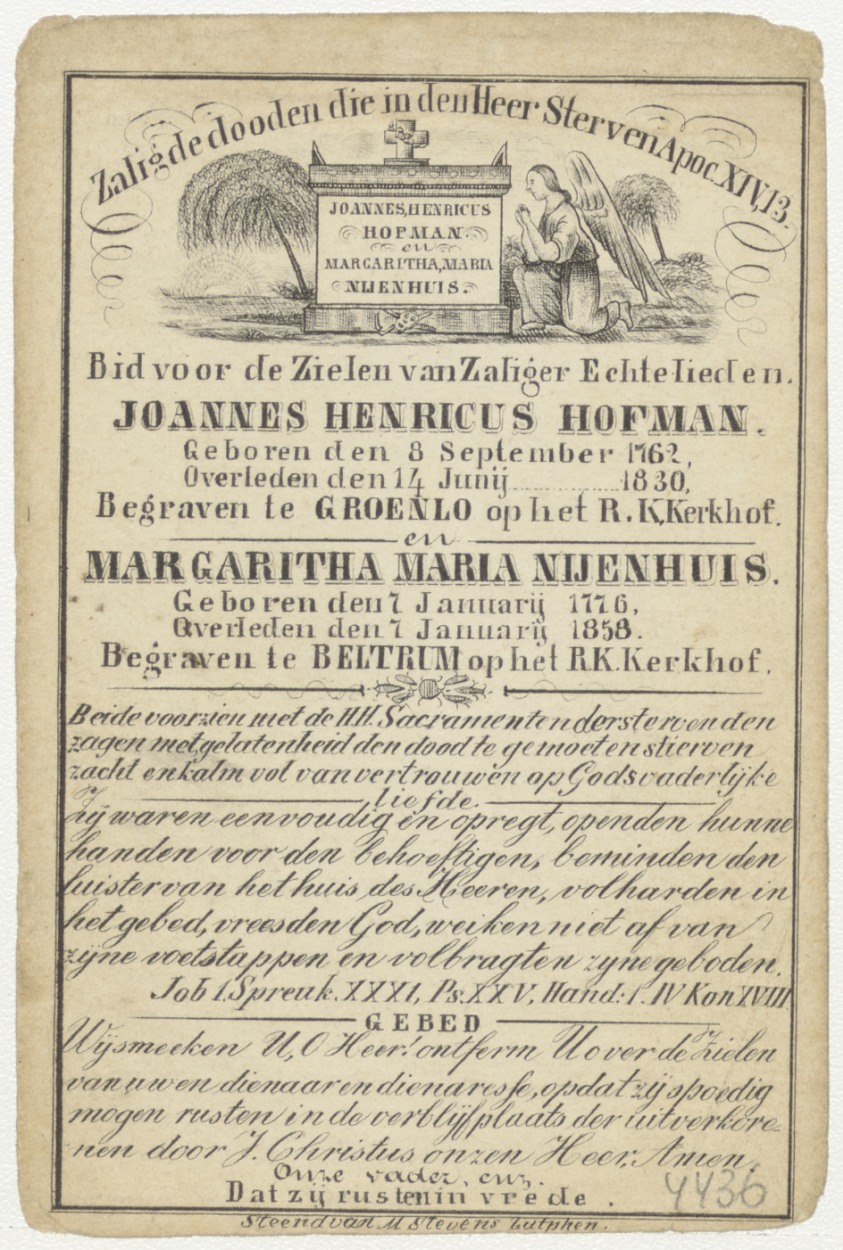 Zalig de dooden die in den Heer Sterven Apoc. XIV, 13.
JOANNES, HENRICUS
HOFMAN.
en
MARGARITHA, MARIA
NIJENHUIS.
Bid voor de Zielen van Zaliger Echtelieden.
JOANNES HENRICUS HOFMAN.
Geboren den 8 September 1762,
Overleden den 14 Junij 1830,
Begraven te GROENLO op het R.K. Kerkhof.
en
MARGARITHA MARIA NIJENHUIS.
Geboren den 7 Januarij 1776,
Overleden den 7 Januarij 1858.
Begraven te BELTRUM op het R.K. Kerkhof.
Beide voorzien met de HH. Sacramenten der stervenden
zagen met gelatenheid den dood te gemoet en stierven
zacht en kalm vol van vertrouwen op Gods vaderlijke
liefde.
Zij waren eenvoudig en opregt, openden hunne
handen voor den behoeftigen, beminden den
luister van het huis des Heeren, volharden in
het gebed, vreesden God, weiken niet af van
zijne voetstappen en volbragten zyne geboden.
Job 1. Spreuk. XXXI, Ps. XXV, Hand: 1. IV Kon XVIII
GEBED
Wij smeeken U, O Heer! ontferm U over de Zielen
van uwen dienaar en dienaresse, opdat zij spoedig
mogen rusten in de verblijfplaats der uitverkore-
nen door J. Christus onzen Heer, Amen.
Onze vader, enz.
Dat zij rusten in vrede.
4436
Steend van M Stevens Zutphen.